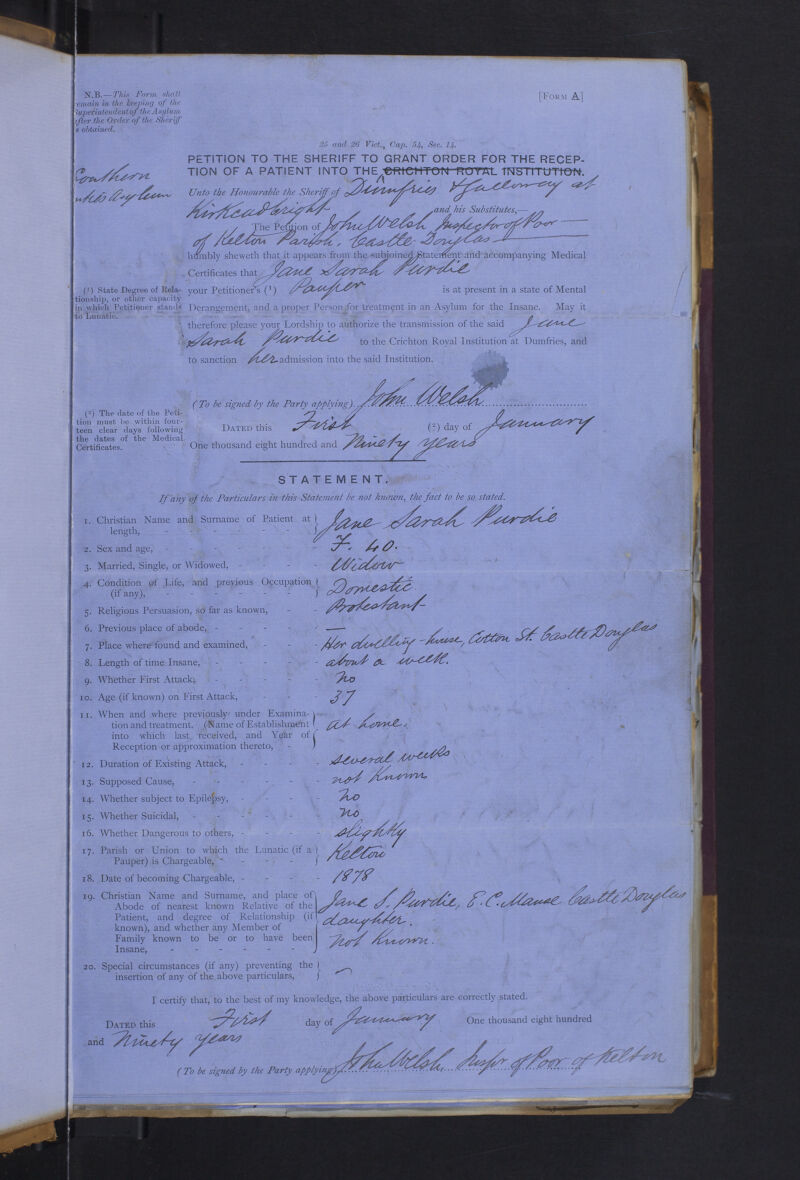 N.B.—This Form shall
remain in the keeping of the
Superintendent of the Asylum
after the Order of the Sheriff
is obtained.
[FORM A]
25 and 26 Vict., Cap. 54, Sec. 14.
PETITION TO THE SHERIFF TO GRANT ORDER FOR THE RECEP-
TION OF A PATIENT INTO THE CRICHTON ROYAL INSTITUTION.
Southern
Counties Asylum
Unto the Honourable the Sheriff of Dumfries & Galloway at
Kirkcudbright and his Substitutes,—
The Petition of John Welsh Inspector of Poor
of Kelton Parish, Castle Douglas
humbly sheweth that it appears from the subjoined Statement and accompanying Medical
Certificates that Jane Sarah Purdie
(¹) State Degree of Rela-
tionship, or other capacity
in which Petitioner stands
to Lunatic.
your Petitioner's (¹) Pauper is at present in a state of Mental
Derangement, and a proper Person for treatment in an Asylum for the Insane. May it
therefore please your Lordship to authorize the transmission of the said Jane
Sarah Purdie to the Crichton Royal Institution at Dumfries, and
to sanction her admission into the said Institution.
(To be signed by the Party applying) John Welsh
(²) The date of the Peti-
tion must be within four-
teen clear days following
the dates of the Medical
Certificates.
DATED this First (²) day of January
One thousand eight hundred and Ninety years
STATEMENT.
If any of the Particulars in this Statement be not known, the fact to be so stated.
1. Christian Name and Surname of Patient at
length, Jane Sarah Purdie
2. Sex and age, F. 40.
3. Married, Single, or Widowed, Widow
4. Condition of Life, and previous Occupation
(if any), Domestic
5. Religious Persuasion, so far as known, Protestant
6. Previous place of abode, —
7. Place where found and examined, Her dwelling-house, Cotton St. Castle Douglas
8. Length of time Insane, about a week.
9. Whether First Attack, no
10. Age (if known) on First Attack, 37
11. When and where previously under Examina-
tion and treatment. (Name of Establishment
into which last received, and Year of
Reception or approximation thereto, at home.
12. Duration of Existing Attack, several weeks
13. Supposed Cause, not Known
14. Whether subject to Epilepsy, no
15. Whether Suicidal, no
16. Whether Dangerous to others, slightly
17. Parish or Union to which the Lunatic (if a
Pauper) is Chargeable, Kelton
18. Date of becoming Chargeable, 1878
19. Christian Name and Surname, and place of
Abode of nearest known Relative of the
Patient, and degree of Relationship (if
known), and whether any Member of
Family known to be or to have been
Insane,
Jane S. Purdie, E.C. Manse Castle Douglas
daughter.
not Known.
20. Special circumstances (if any) preventing the
insertion of any of the above particulars, —
I certify that, to the best of my knowledge, the above particulars are correctly stated.
DATED this First day of January One thousand eight hundred
and Ninety years
(To be signed by the Party applying) John Welsh, Inspr of Poor of Kelton